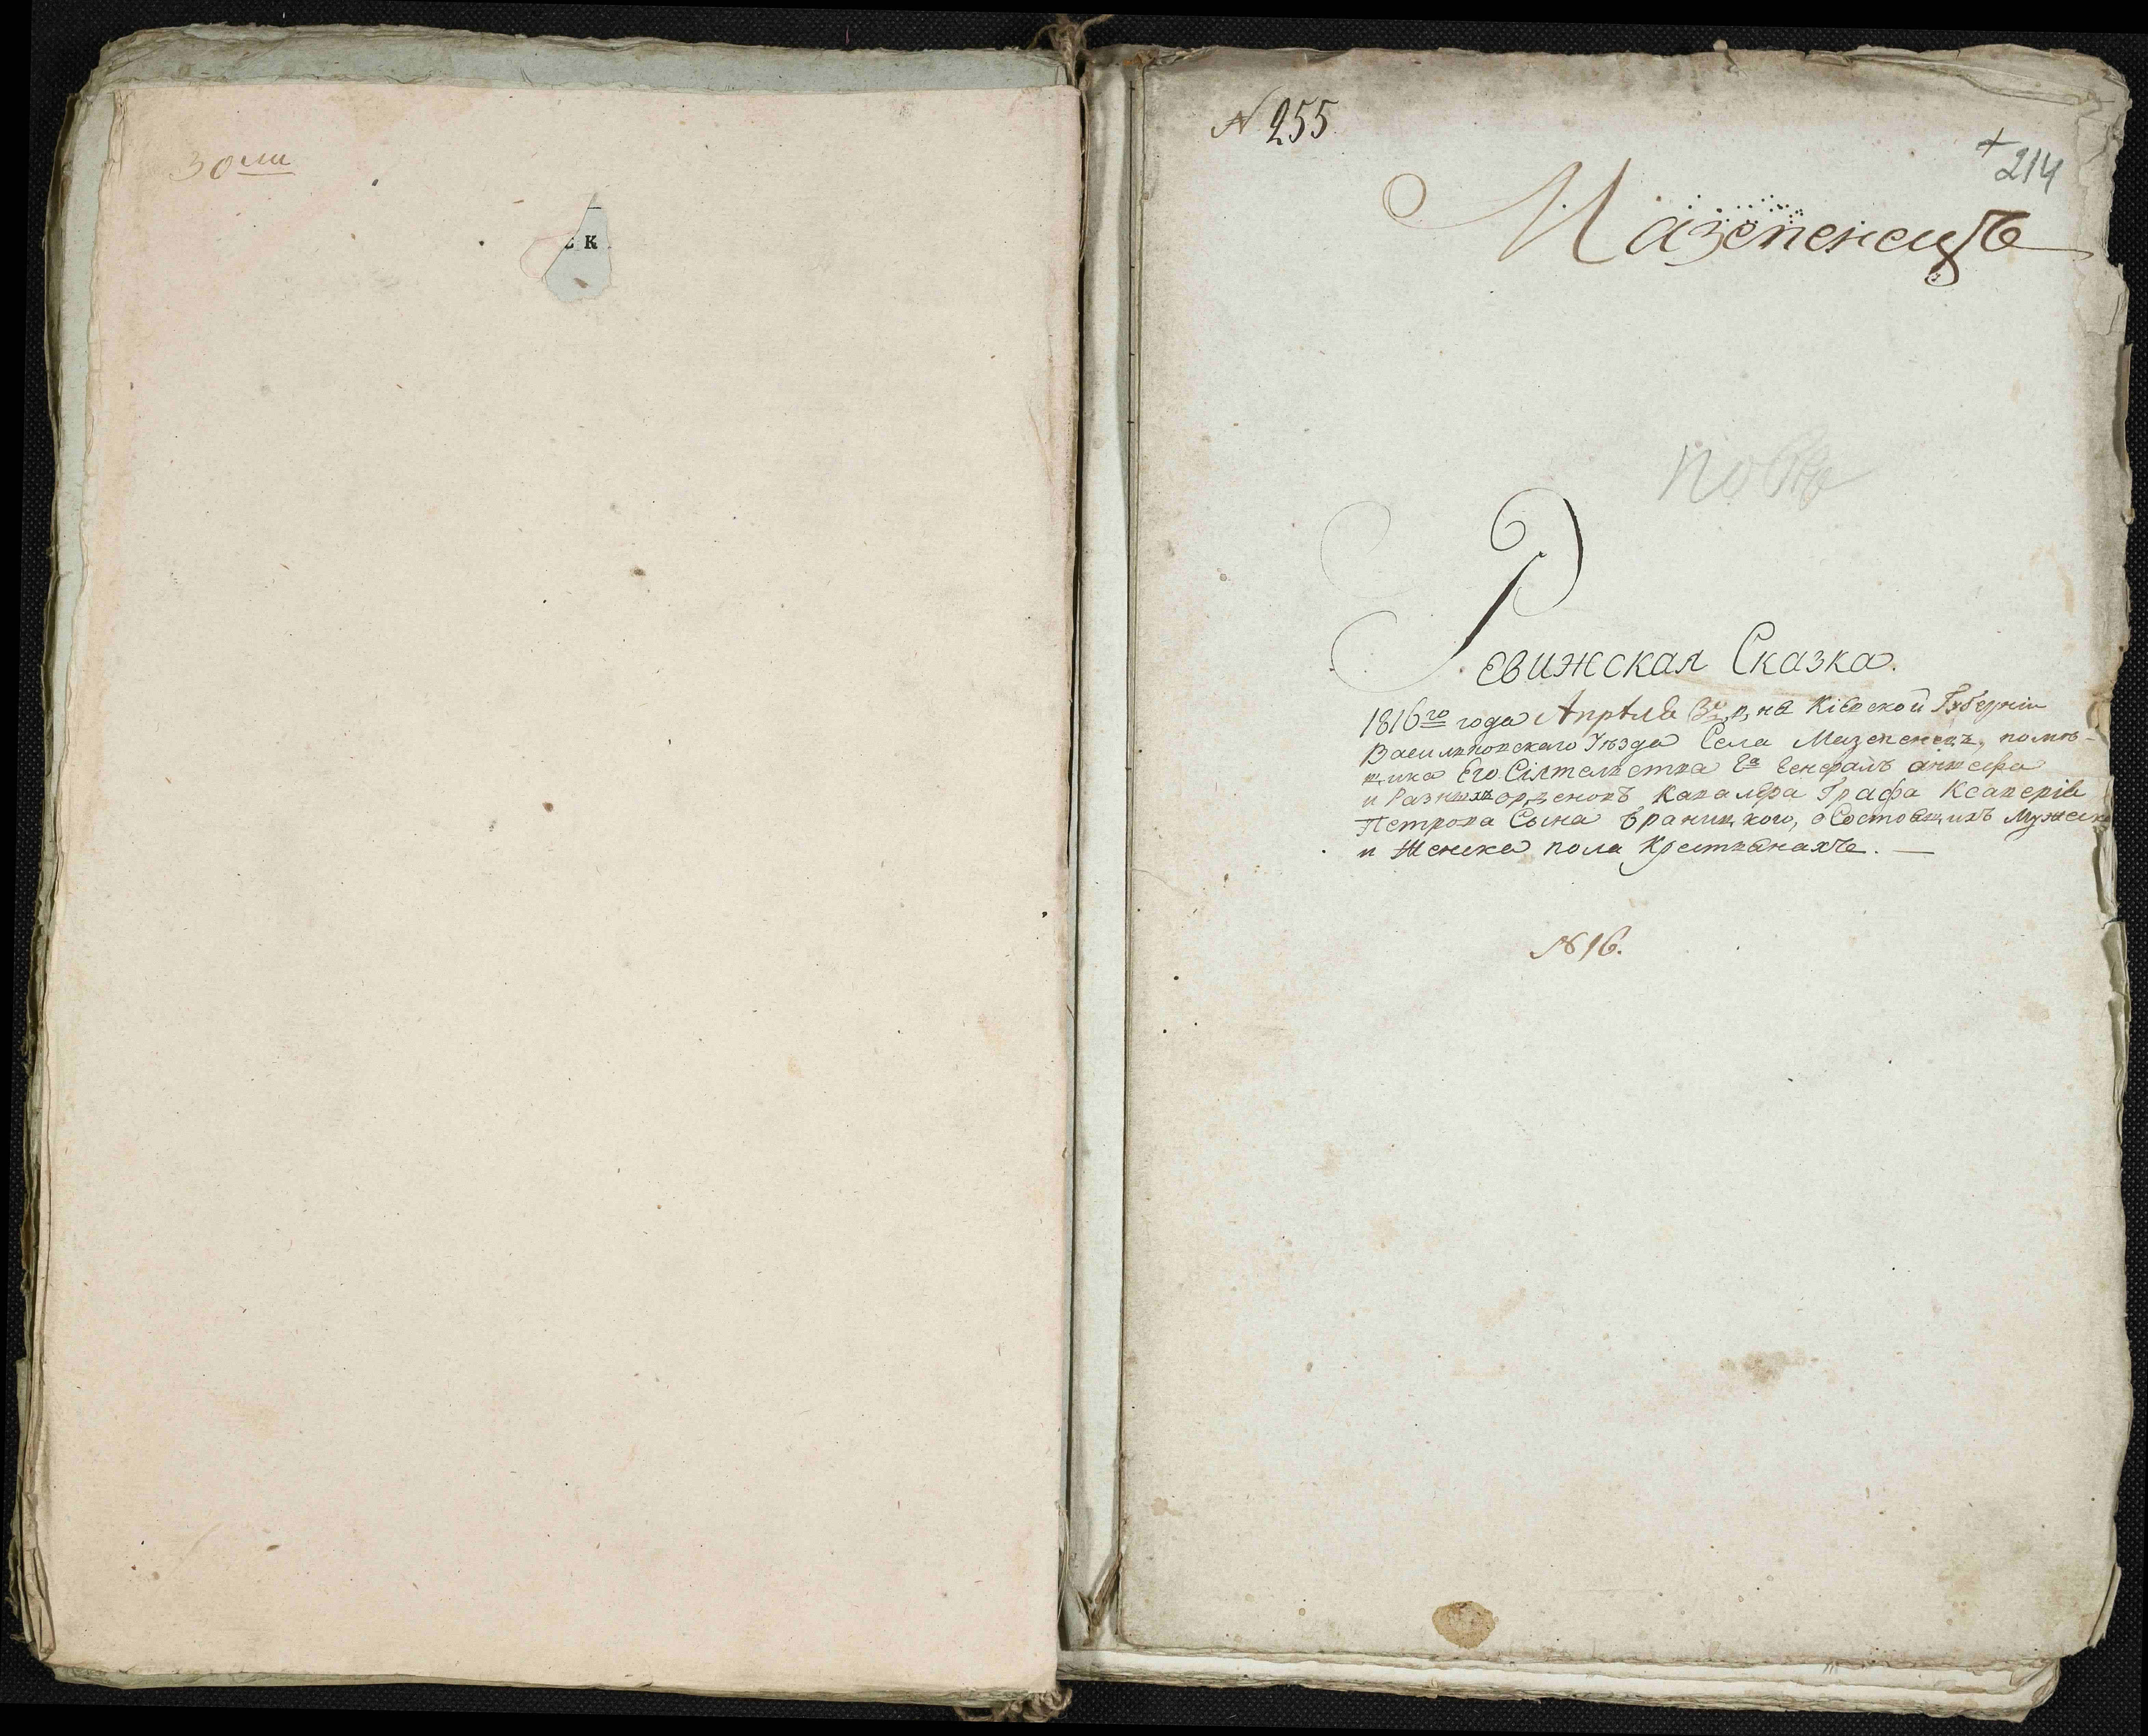 30ми
К
N 255
+
214
Мазепенецъ
Ревижская Сказка.
1816го года Апрѣля дня Кіевской Губерніи
Васильковскаго Уѣзда Села Мазепенецъ, помѣ-
щика Его Сіятельства Гa Генералъ аншефа
и Разныхъ орденовъ Кавалера Графа Ксаверія
Петрова Сына Браницкого, о Состоящихъ Мужеска
и Женска пола Крестьянахъ. —
№ 16.